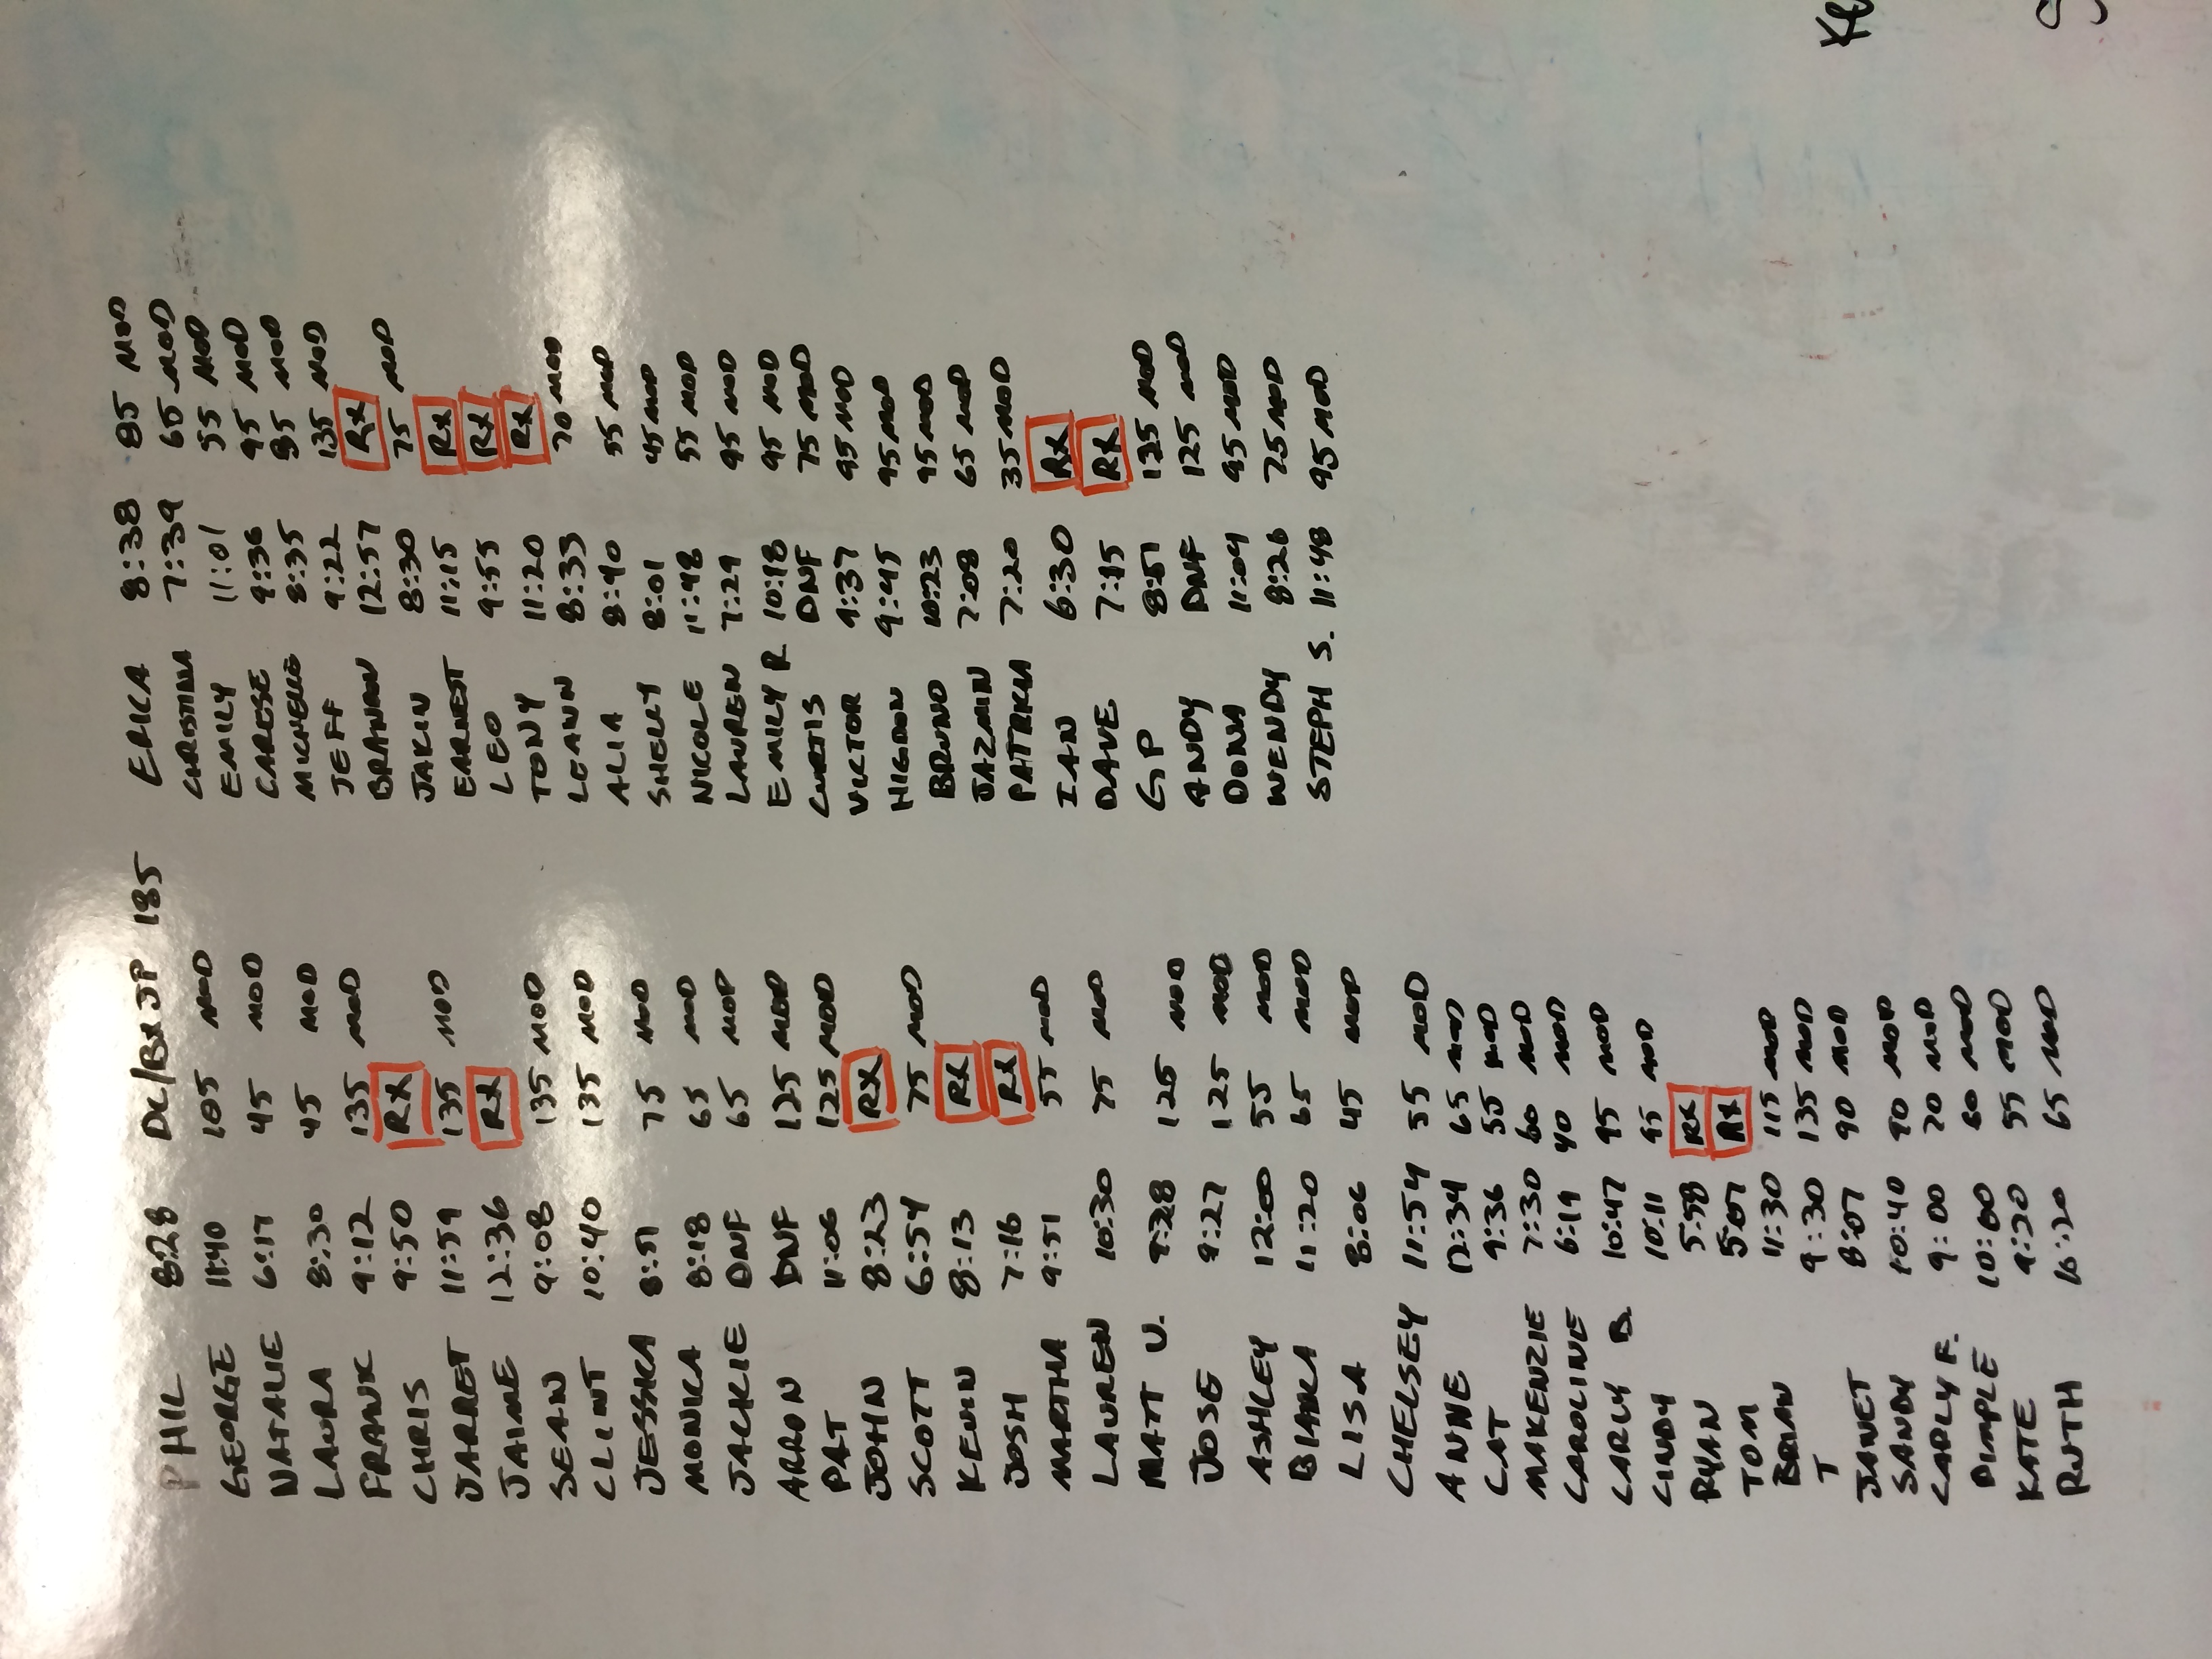 PHIL 8:28 DL/BXJP 185
GEORGE 11:40 105 MOD
NATALIE 6:17 45 MOD
LAURA 8:30 45 MOD
FRANK 9:12 135 MOD
CHRIS 9:50 RX
JARRET 11:59 135 MOD
JAIME 12:36 RX
SEAN 9:08 135 MOD
CLINT 10:40 135 MOD
JESSICA 8:51 75 MOD
MONICA 8:18 65 MOD
JACKIE DNF 65 MOD
ARRON DNF 125 MOD
PAT 11:06 125 MOD
JOHN 8:23 RX
SCOTT 6:54 75 MOD
KEVIN 8:13 RX
JOSH 7:16 RX
MARTHA 9:51 55 MOD
LAUREN 10:30 75 MOD
MATT U. 9:28 125 MOD
JOSE 9:27 125 MOD
ASHLEY 12:00 55 MOD
BIANCA 11:20 65 MOD
LISA 8:06 45 MOD
CHELSEY 11:54 55 MOD
ANNE 12:34 65 MOD
CAT 9:36 55 MOD
MAKENZIE 7:30 60 MOD
CAROLINE 6:19 40 MOD
CARLY B. 10:47 95 MOD
CINDY 10:11 95 MOD
RYAN 5:58 RX
TOM 5:07 RX
BRIAN 11:30 115 MOD
T 9:30 135 MOD
JANET 8:07 90 MOD
SANDY 10:40 90 MOD
CARLY F. 9:00 70 MOD
DIMPLE 10:00 60 MOD
KATE 9:20 55 MOD
RUTH 10:20 65 MOD
ERICA 8:38 85 MOD
CHRISTINA 7:39 65 MOD
EMILY 11:01 55 MOD
CARESE 9:36 95 MOD
MICHELLE 8:35 95 MOD
JEFF 9:22 135 MOD
BRANDAN 12:57 RX
JAKLIN 8:30 75 MOD
EARNEST 11:15 RX
LEO 9:55 RX
TONY 11:20 RX
LEANN 8:33 70 MOD
ALIA 8:40 55 MOD
SHELLY 8:01 45 MOD
NICOLE 11:48 55 MOD
LAUREN 7:29 95 MOD
EMILY R 10:18 95 MOD
CURTIS DNF 75 MOD
VICTOR 9:37 95 MOD
HIGDON 9:45 95 MOD
BRUNO 10:23 95 MOD
JAZMIN 7:08 65 MOD
PATRICIA 7:20 35 MOD
IAN 6:30 RX
DAVE 7:15 RX
GP 8:51 135 MOD
ANDY DNF 125 MOD
DONA 11:09 95 MOD
WENDY 8:26 75 MOD
STEPH S. 11:48 95 MOD